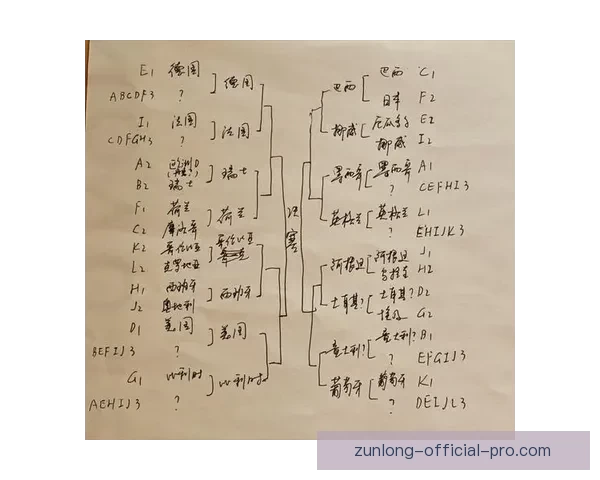 E1 德国
ABCDF3 ?
德国
I1 法国
CDFGH3 ?
法国
A2 欧洲D
B2 瑞士
瑞士
F1 荷兰
C2 摩洛哥
荷兰
K2 哥伦比亚
L2 克罗地亚
哥伦比亚
H1 西班牙
J2 奥地利
西班牙
D1 美国
BEFIJ3 ?
美国
G1 比利时
AEHIJ3 ?
比利时
决赛
巴西
巴西 C1
日本 F2
挪威
厄瓜多尔 E2
挪威 I2
墨西哥
墨西哥 A1
? CEFHI3
英格兰
英格兰 L1
? EHIJK3
阿根廷
阿根廷 J1
乌拉圭 H2
土耳其?
土耳其? D2
埃及 G2
意大利?
意大利? B1
? EFGIJ3
葡萄牙
葡萄牙 K1
? DEIJL3
zunlong-official-pro.com